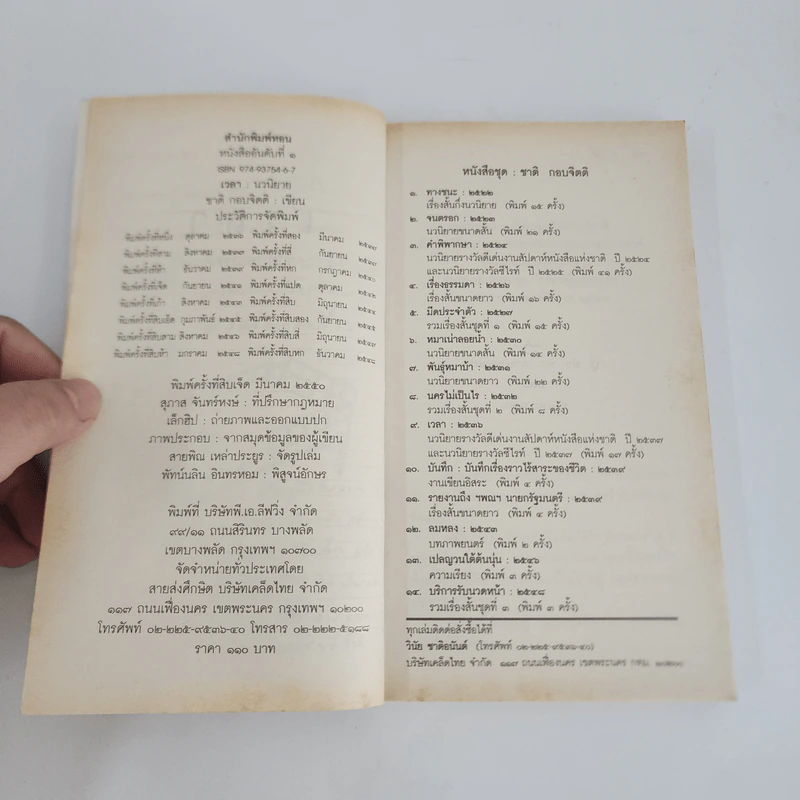 สำนักพิมพ์หอน
หนังสืออันดับที่ ๑
ISBN 974-93754-6-7
เวลา : นวนิยาย
ชาติ กอบจิตติ : เขียน
ประวัติการจัดพิมพ์
พิมพ์ครั้งที่หนึ่ง ตุลาคม ๒๕๓๖ พิมพ์ครั้งที่สอง มีนาคม ๒๕๓๗
พิมพ์ครั้งที่สาม สิงหาคม ๒๕๓๗ พิมพ์ครั้งที่สี่ กันยายน ๒๕๓๗
พิมพ์ครั้งที่ห้า ธันวาคม ๒๕๓๗ พิมพ์ครั้งที่หก กรกฎาคม
พิมพ์ครั้งที่เจ็ด กันยายน พิมพ์ครั้งที่แปด ตุลาคม
พิมพ์ครั้งที่เก้า สิงหาคม ๒๕๔๓ พิมพ์ครั้งที่สิบ มิถุนายน
พิมพ์ครั้งที่สิบเอ็ด กุมภาพันธ์ ๒๕๔๕ พิมพ์ครั้งที่สิบสอง กันยายน ๒๕๔๕
พิมพ์ครั้งที่สิบสาม สิงหาคม ๒๕๔๖ พิมพ์ครั้งที่สิบสี่ มิถุนายน ๒๕๔๗
พิมพ์ครั้งที่สิบห้า มกราคม ๒๕๔๘ พิมพ์ครั้งที่สิบหก ธันวาคม ๒๕๔๘
พิมพ์ครั้งที่สิบเจ็ด มีนาคม ๒๕๕๐
สุภาส จันทร์หงษ์ : ที่ปรึกษากฎหมาย
เล็กฮิป : ถ่ายภาพและออกแบบปก
ภาพประกอบ : จากสมุดข้อมูลของผู้เขียน
สายพิณ เหล่าประยูร : จัดรูปเล่ม
พัทน์นลิน อินทรหอม : พิสูจน์อักษร
พิมพ์ที่ บริษัทพี.เอ.ลีฟวิ่ง จำกัด
๙๙/๑๑ ถนนสิรินทร บางพลัด
เขตบางพลัด กรุงเทพฯ ๑๐๗๐๐
จัดจำหน่ายทั่วประเทศโดย
สายส่งศึกษิต บริษัทเคล็ดไทย จำกัด
๑๑๗ ถนนเฟื่องนคร เขตพระนคร กรุงเทพฯ ๑๐๒๐๐
โทรศัพท์ ๐๒-๒๒๕-๙๕๓๖-๔๐ โทรสาร ๐๒-๒๒๒-๕๑๘๘
ราคา ๑๑๐ บาท
หนังสือชุด : ชาติ กอบจิตติ
๑. ทางชนะ : ๒๕๒๒
เรื่องสั้นกึ่งนวนิยาย (พิมพ์ ๑๕ ครั้ง)
๒. จนตรอก : ๒๕๒๓
นวนิยายขนาดสั้น (พิมพ์ ๒๑ ครั้ง)
๓. คำพิพากษา : ๒๕๒๔
นวนิยายรางวัลดีเด่นงานสัปดาห์หนังสือแห่งชาติ ปี ๒๕๒๔
และนวนิยายรางวัลซีไรท์ ปี ๒๕๒๕ (พิมพ์ ๔๑ ครั้ง)
๔. เรื่องธรรมดา : ๒๕๒๖
เรื่องสั้นขนาดยาว (พิมพ์ ๑๖ ครั้ง)
๕. มีดประจำตัว : ๒๕๒๗
รวมเรื่องสั้นชุดที่ ๑ (พิมพ์ ๑๕ ครั้ง)
๖. หมาเน่าลอยน้ำ : ๒๕๓๐
นวนิยายขนาดสั้น (พิมพ์ ๑๔ ครั้ง)
๗. พันธุ์หมาบ้า : ๒๕๓๑
นวนิยายขนาดยาว (พิมพ์ ๒๒ ครั้ง)
๘. นครไม่เป็นไร : ๒๕๓๒
รวมเรื่องสั้นชุดที่ ๒ (พิมพ์ ๘ ครั้ง)
๙. เวลา : ๒๕๓๖
นวนิยายรางวัลดีเด่นงานสัปดาห์หนังสือแห่งชาติ ปี ๒๕๓๗
และนวนิยายรางวัลซีไรท์ ปี ๒๕๓๗ (พิมพ์ ๑๗ ครั้ง)
๑๐. บันทึก : บันทึกเรื่องราวไร้สาระของชีวิต : ๒๕๓๙
งานเขียนอิสระ (พิมพ์ ๔ ครั้ง)
๑๑. รายงานถึง ฯพณฯ นายกรัฐมนตรี : ๒๕๓๙
เรื่องสั้นขนาดยาว (พิมพ์ ๔ ครั้ง)
๑๒. ลมหลง : ๒๕๔๓
บทภาพยนตร์ (พิมพ์ ๒ ครั้ง)
๑๓. เปลญวนใต้ต้นนุ่น : ๒๕๔๖
ความเรียง (พิมพ์ ๓ ครั้ง)
๑๔. บริการรับนวดหน้า : ๒๕๔๘
รวมเรื่องสั้นชุดที่ ๓ (พิมพ์ ๓ ครั้ง)
ทุกเล่มติดต่อสั่งซื้อได้ที่
วินัย ชาติอนันต์ (โทรศัพท์ ๐๒-๒๒๕-๙๕๓๖-๔๐)
บริษัทเคล็ดไทย จำกัด ๑๑๗ ถนนเฟื่องนคร เขตพระนคร กทม. ๑๐๒๐๐